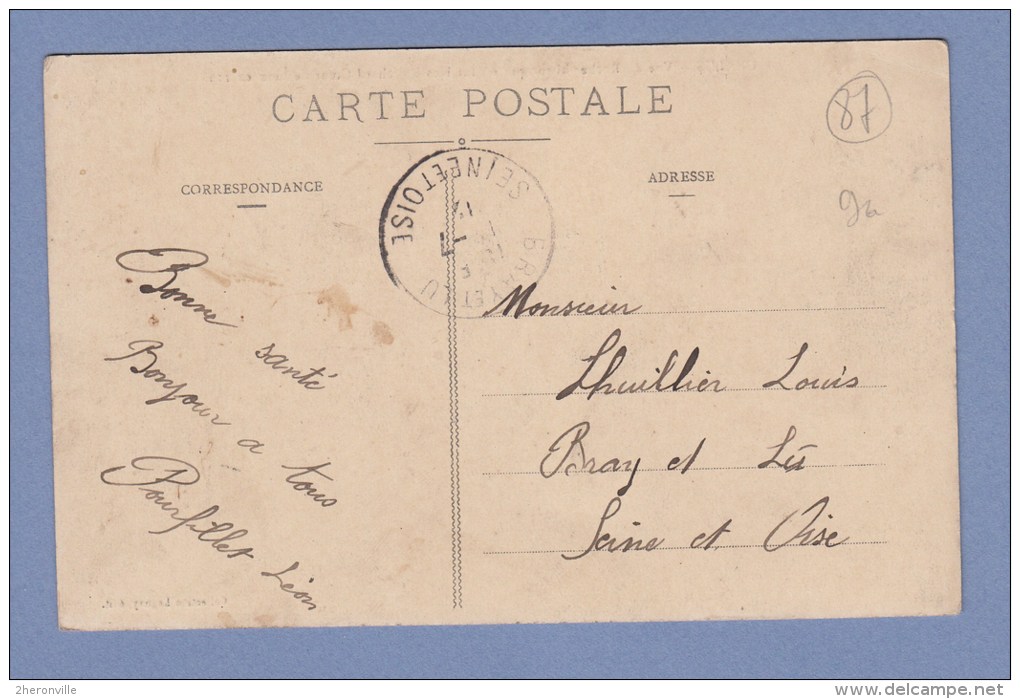 CARTE POSTALE
87
CORRESPONDANCE
ADRESSE
SEINE ET OISE
BRAY ET LU
Bonne santé
Bonjour a tous
Pourfillet Léon
Monsieur
Lhuillier Louis
Bray et Lû
Seine et Oise
2heronville
delcampe.net